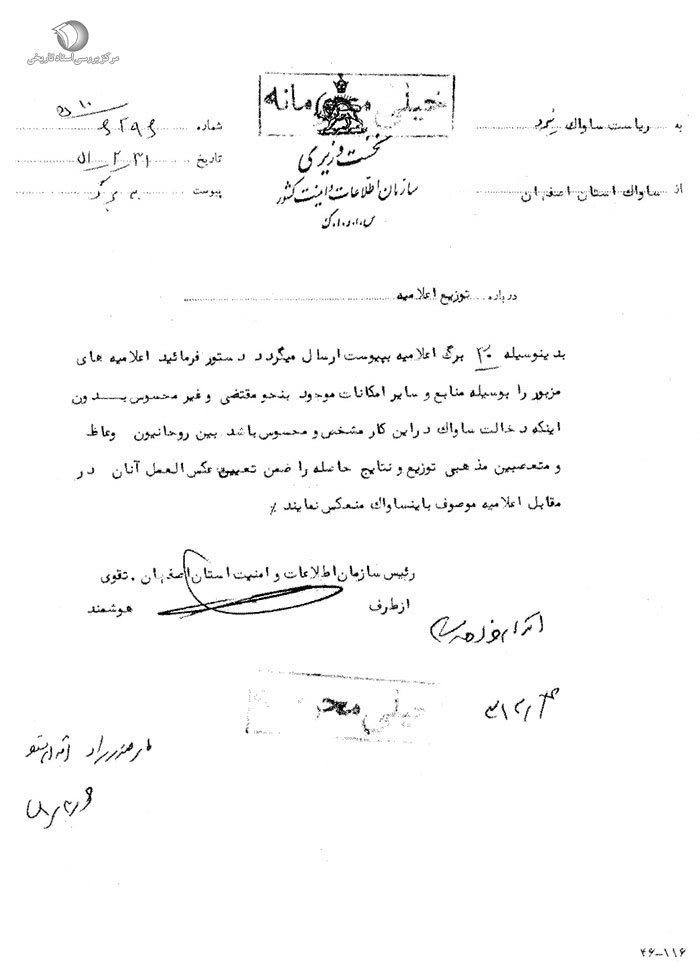 مرکز بررسی اسناد تاریخی
خیلی محرمانه
به ریاست ساواک
شماره
از ساواک استان اصفهان
تاریخ ۵۱/۲/۳۱
پیوست
نخست وزیری
سازمان اطلاعات و امنیت کشور
س.ا.و.ا.ک
درباره توزیع اعلامیه
بدینوسیله ۳۰ برگ اعلامیه بپیوست ارسال میگردد دستور فرمائید اعلامیه های
مزبور را بوسیله منابع و سایر امکانات موجود بنحو مقتضی و غیر محسوس بدون
اینکه دخالت ساواک در این کار مشخص و محسوس باشد بین روحانیون وعاظ
و متعصبین مذهبی توزیع و نتایج حاصله را ضمن تعیین عکس العمل آنان در
مقابل اعلامیه موصوف باینساواک منعکس نمایند ٪
رئیس سازمان اطلاعات و امنیت استان اصفهان . تقوی
از طرف هوشمند
خیلی
۴۶-۱۱۶